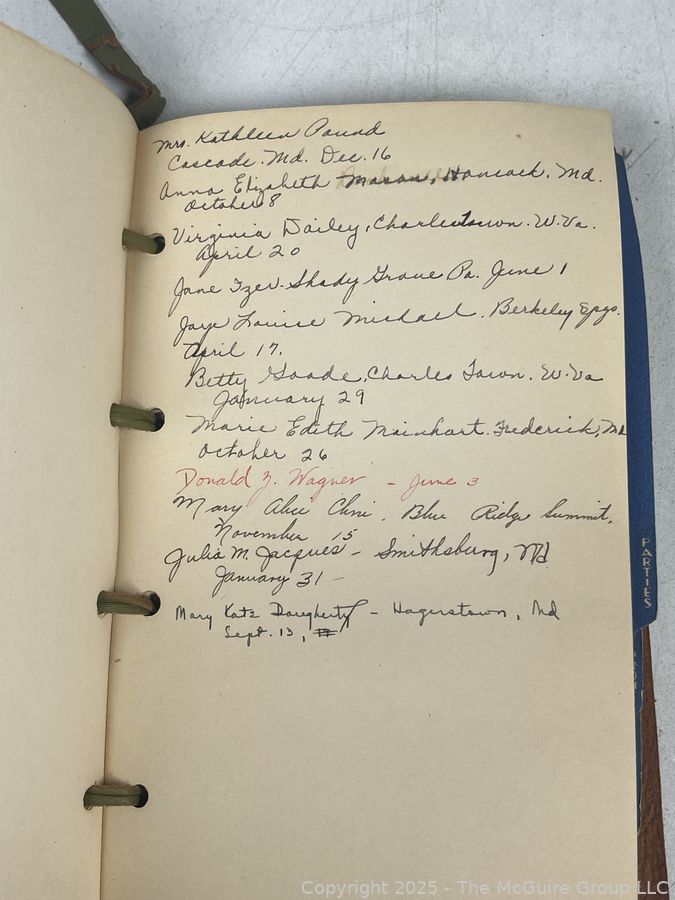 Mrs. Kathleen Pound
Cascade. Md. Dec. 16
Anna Elizabeth Mason, Hancock, Md.
October 8
Virginia Dailey, Charlestown. W.Va.
April 20
Jane Izer. Shady Grove Pa. June 1
Jaye Louise Michael. Berkeley Spgs.
April 17.
Betty Goode, Charles Town. W.Va
January 29
Marie Edith Mainhart. Frederick, Md
October 26
Donald Z. Wagner - June 3
Mary Alice Cline, Blue Ridge Summit,
November 15
Julia M. Jacques - Smithsburg, Md.
January 31 -
Mary Kate Daugherty - Hagerstown, Md
Sept. 13,
PARTIES
Copyright 2025 - The McGuire Group LLC